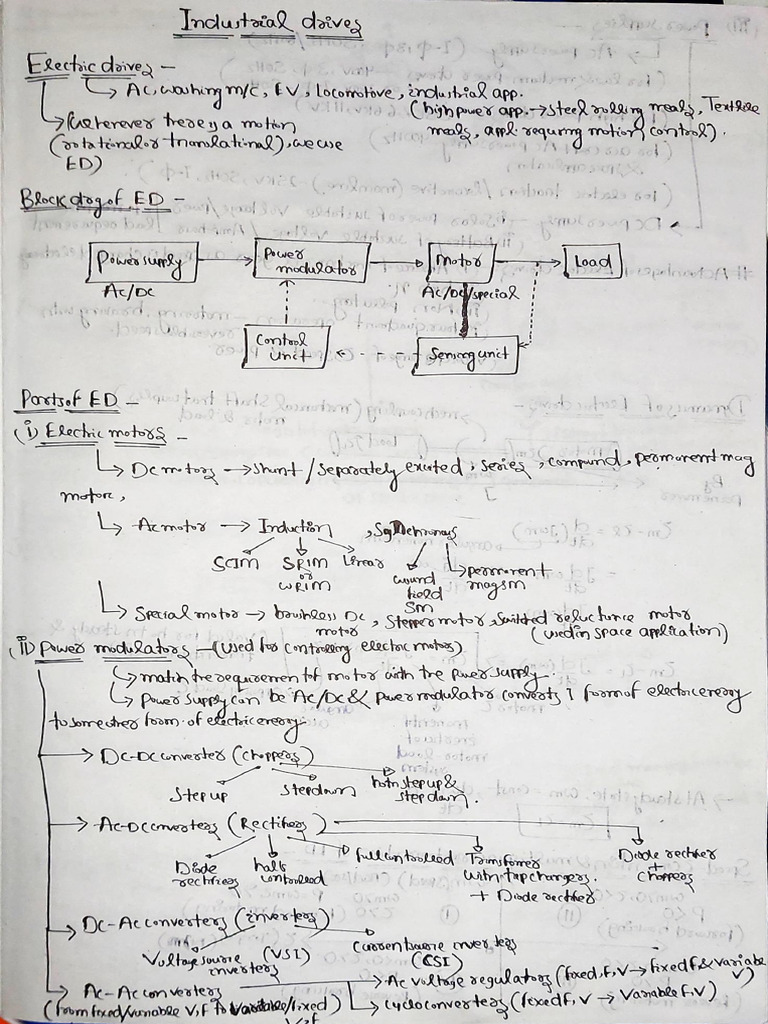 Industrial drives
Electric drives -
↳ AC, washing m/c, EV, Locomotive, industrial app.
(high power app. → steel rolling meals, Textile
meals, appli. requring motion control).
↳ (wherever there is a motion
(rotational or translational), we use
ED)
Block diag of ED -
Power supply
AC/DC
Power
modulator
Motor
AC/DC/special
Load
Control
Unit
Sensing unit
Parts of ED -
(i) Electric motors -
↳ DC motors → shunt / separately excited, series, compound, permanent mag
motor,
↳ AC motor → Induction, Synchronous
SCIM
SRIM
or
WRIM
Linear
wound
field
SM
permanent
mag sm
↳ Special motor → brushless DC
motor, stepper motor, switched reluctance motor
(used in space application)
(ii) Power modulators - (used for controlling electric motors)
↳ match the requirement of motor with the power supply.
↳ power supply can be AC/DC & power modulator converts 1 form of electric energy
to some other form of electric energy.
→ DC-DC converter (choppers)
Step up
step down
both step up &
step down.
→ AC-DC converters (Rectifiers)
Diode
rectifiers
half
controlled
full controlled
Transformer
with tap changers.
+ Diode rectifier
Diode rectifier
+
choppers
→ DC-AC converters (inverters)
Voltage source
inverters
(VSI)
Current source inverters
(CSI)
→ AC-AC converters
(from fixed/variable V, f to variable/fixed)
V, f
→ AC voltage regulators (fixed, f, V → fixed f & variable
V)
↳ Cycloconverters (fixed f, V → Variable f, V)